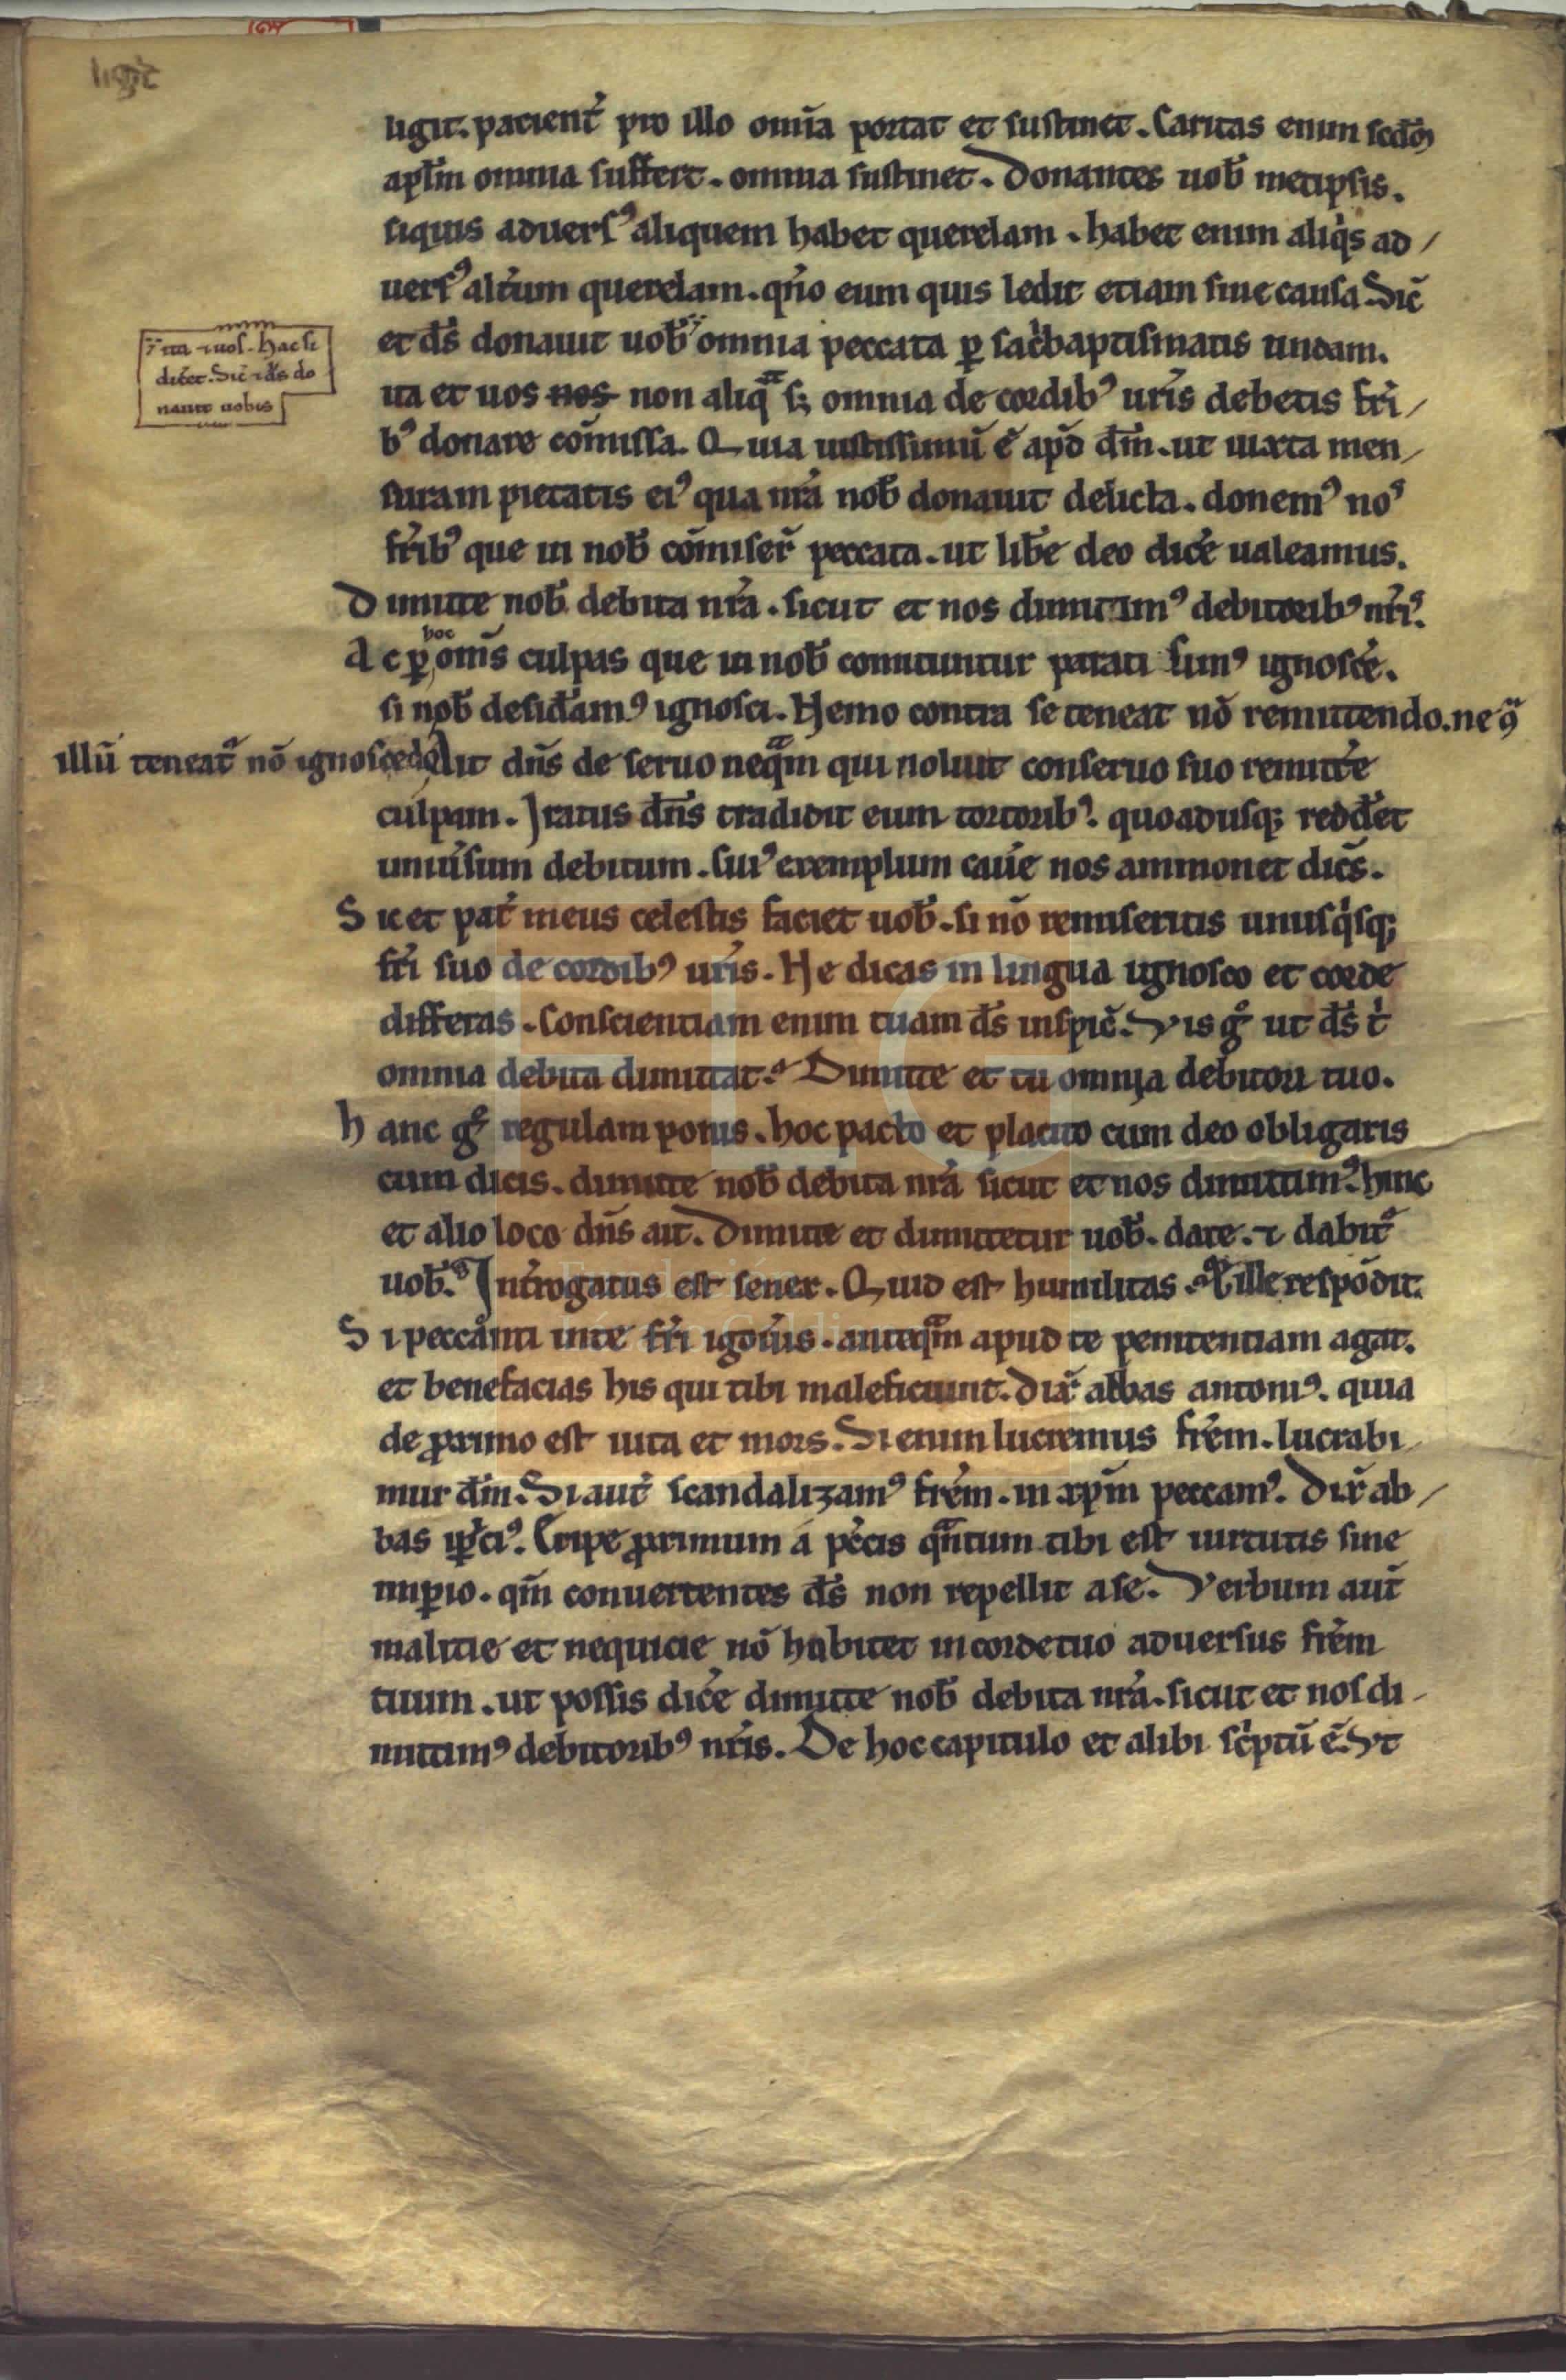 ligit. pacient̓ pro illo om̄ia portat et sustinet. Caritas enim scdm̄
apl̄m omnia suffert. omnia sustinet. Donantes uob̄ metipsis.
siquis aduersꝰ aliquem habet querelam. habet enim aliq̓s ad/
uersꝰ alt̓um querelam. qn̄o eum quis ledit etiam sine causa. Sic̄
et ds̄ donauit uob̄ omnia peccata ꝑ sac̓ baptismatis undam.
ita et uos nos non aliq̄ s; omnia de cordibꝰ ur̄is debetis fr̄i/
bꝰ donare com̄issa. Quia iustissimū ē apd̄ dm̄. ut iuxta men/
suram pietatis eiꝰ qua nr̄a nob̄ donauit delicta. donemꝰ noˢ
fr̄ibꝰ que in nob̄ com̄iser̄ peccata. ut lib̄e deo dic̓e ualeamus.
Dimitte nob̄ debita nr̄a. sicut et nos dimittimꝰ debitoribꝰ nr̄iˢ.
Ac ꝑ hoc om̄s culpas que in nob̄ comittuntur parati sumꝰ ignosc̓e.
si nob̄ desid̄amꝰ ignosci. Nemo contra se teneat nō remittendo. ne ꝯᵃ
illū teneat̄ nō ignoscēdo. Ait dn̄s de seruo neq̄m qui noluit conseruo suo remitt̓e
culpam. Iratus dn̄s tradidit eum tortoribꝰ. quoadusq; redd̄et
uniu̓sum debitum. Cuiꝰ exemplum cau̓e nos ammonet dic̄s.
Sic et pat̓ meus celestis faciet uob̄. si nō remiseritis unusq̓sq;
fr̄i suo de cordibꝰ ur̄is. Ne dicas in lingua ignosco et corde
differas. Conscientiam enim tuam ds̄ inspic̄. Vis gᵒ ut ds̄ t̓
omnia debita dimittat. Dimitte et tu omnia debitori tuo.
hanc gᵒ regulam ponis. hoc pacto et placito cum deo obligaris
cum dicis. dimitte nob̄ debita nr̄a sicut et nos dimittimꝰ. hinc
et alio loco dn̄s ait. Dimitte et dimittetur uob̄. date. ⁊ dabit̄
uob̄. Int̓rogatus est senex. Quid est humilitas. Et ille respōdit.
Si peccanti in te fr̄i ignou̓is. anteq̄m apud te penitentiam agat.
et benefacias his qui tibi maleficiunt. Dix̄ abbas antoniꝰ. quia
de ꝓximo est uita et mors. Si enim lucremus fr̄em. lucrabi/
mur dm̄. Si aut̄ scandalizamꝰ fr̄em. in xp̄m peccamꝰ. Dix̄ ab/
bas ip̄iciꝰ. Eripe ꝓximum a pc̄cis q̄ntum tibi est uirtutis sine
imꝓio. qm̄ conuertentes ds̄ non repellit a se. Verbum aut̄
malitie et nequicie nō habitet in corde tuo aduersus fr̄em
tuum. ut possis dic̓e dimitte nob̄ debita nr̄a. sicut et nos di/
mittimꝰ debitoribꝰ nr̄is. De hoc capitulo et alibi sc̓ptū ē. Vt
ita ⁊ uos. hac si
dic̓et. Sic̄ ⁊ ds̄ do
nauit uobis
FLG
Fundación